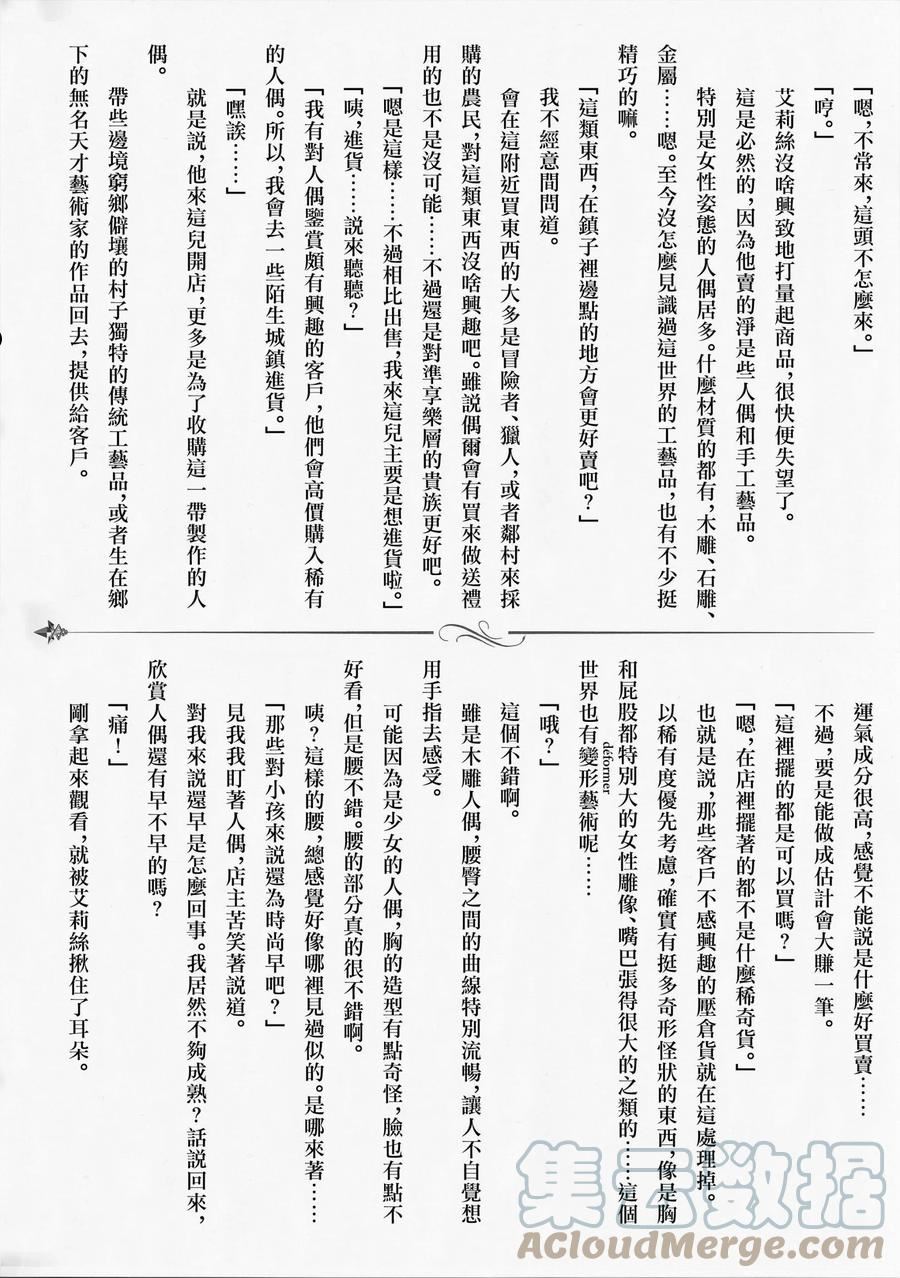 「嗯，不常來，這頭不怎麼來。」
「哼。」
艾莉絲沒啥興致地打量起商品，很快便失望了。
這是必然的，因為他賣的淨是些人偶和手工藝品。
特別是女性姿態的人偶居多。什麼材質的都有，木雕、石雕、
金屬……嗯。至今沒怎麼見識過這世界的工藝品，也有不少挺
精巧的嘛。
「這類東西，在鎮子裡邊點的地方會更好賣吧？」
我不經意間問道。
會在這附近買東西的大多是冒險者、獵人，或者鄰村來採
購的農民，對這類東西沒啥興趣吧。雖說偶爾會有買來做送禮
用的也不是沒可能……不過還是對準享樂層的貴族更好吧。
「嗯是這樣……不過相比出售，我來這兒主要是想進貨啦。」
「咦，進貨……說來聽聽？」
「我有對人偶鑒賞頗有興趣的客戶，他們會高價購入稀有
的人偶。所以，我會去一些陌生城鎮進貨。」
「嘿誒……」
就是說，他來這兒開店，更多是為了收購這一帶製作的人
偶。
帶些邊境窮鄉僻壤的村子獨特的傳統工藝品，或者生在鄉
下的無名天才藝術家的作品回去，提供給客戶。
運氣成分很高，感覺不能說是什麼好買賣……
不過，要是能做成估計會大賺一筆。
「這裡擺的都是可以買嗎？」
「嗯，在店裡擺著的都不是什麼稀奇貨。」
也就是說，那些客戶不感興趣的壓倉貨就在這處理掉。
以稀有度優先考慮，確實有挺多奇形怪狀的東西，像是胸
和屁股都特別大的女性雕像、嘴巴張得很大的之類的……這個
世界也有變形藝術呢……
déformer
「哦？」
這個不錯啊。
雖是木雕人偶，腰臀之間的曲線特別流暢，讓人不自覺想
用手指去感受。
可能因為是少女的人偶，胸的造型有點奇怪，臉也有點不
好看，但是腰不錯。腰的部分真的很不錯啊。
咦？這樣的腰，總感覺好像哪裡見過似的。是哪來著……
「那些對小孩來說還為時尚早吧？」
見我我盯著人偶，店主苦笑著說道。
對我來說還早是怎麼回事。我居然不夠成熟？話說回來，
欣賞人偶還有早不早的嗎？
「痛！」
剛拿起來觀看，就被艾莉絲揪住了耳朵。
集云数据
ACloudMerge.com